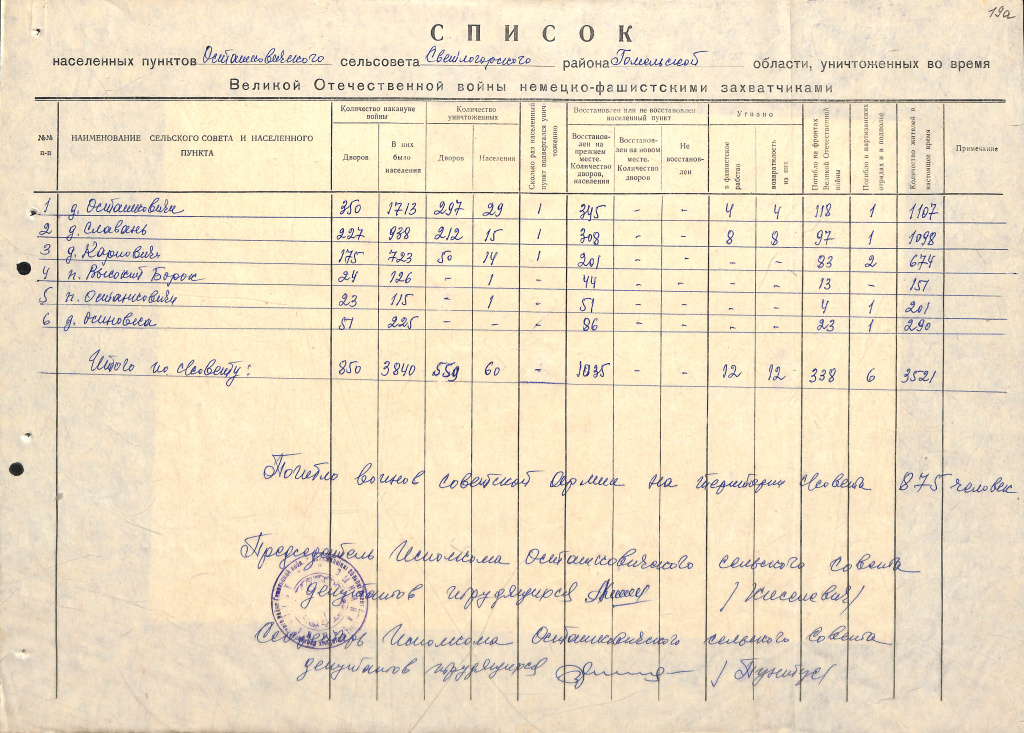 19а
СПИСОК
населенных пунктов Осташковичского сельсовета Светлогорского района Гомельской области, уничтоженных во время
Великой Отечественной войны немецко-фашистскими захватчиками
№№ п-п
НАИМЕНОВАНИЕ СЕЛЬСКОГО СОВЕТА И НАСЕЛЕННОГО ПУНКТА
Количество накануне войны
Дворов
В них было населения
Количество уничтоженных
Дворов
Населения
Сколько раз населенный пункт подвергался уничтожению
Восстановлен или не восстановлен населенный пункт
Восстановлен на прежнем месте. Количество дворов, населения
Восстановлен на новом месте. Количество дворов
Не восстановлен
Угнано
в фашистское рабство
возвратилось из них
Погибло на фронтах Великой Отечественной войны
Погибло в партизанских отрядах и в подполье
Количество жителей в настоящее время
Примечание
1 д. Осташковичи 350 1713 297 29 1 345 - - 4 4 118 1 1107
2 д. Славань 227 938 212 15 1 308 - - 8 8 97 1 1098
3 д. Карповичи 175 723 50 14 1 201 - - - - 83 2 674
4 п. Высокий Борок 24 126 - 1 - 44 - - - - 13 - 151
5 п. Осташковичи 23 115 - 1 - 51 - - - - 4 1 201
6 д. Осиновка 51 225 - - - 86 - - - - 23 1 290
Итого по с/совету: 850 3840 559 60 - 1035 - - 12 12 338 6 3521
Погибло воинов советской Армии на территории с/совета 875 человек
Председатель Исполкома Осташковичского сельского Совета
депутатов трудящихся /Киселевич/
Секретарь Исполкома Осташковичского сельского Совета
депутатов трудящихся